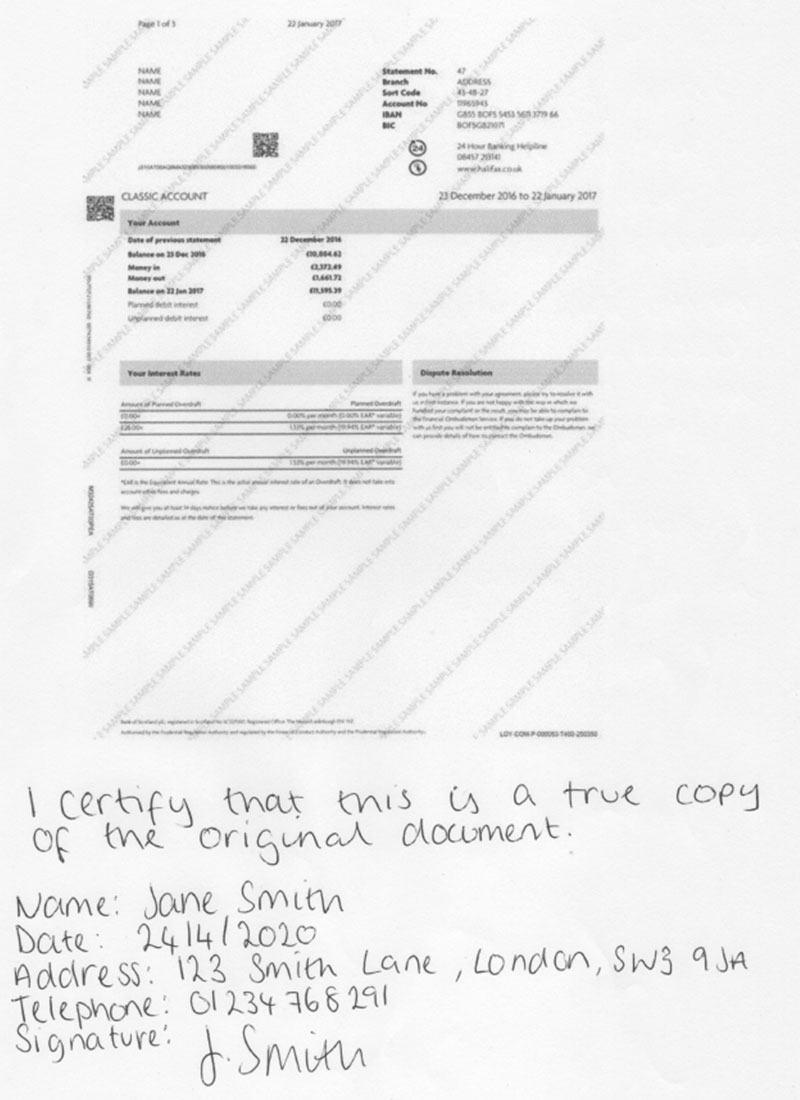 Page 1 of 3 22 January 2017
NAME
NAME
NAME
NAME
NAME
Statement No. 47
Branch ADDRESS
Sort Code 43-48-27
Account No 11965943
IBAN
BIC
24 Hour Banking Helpline
www.halifax.co.uk
CLASSIC ACCOUNT 23 December 2016 to 22 January 2017
Your Account
Date of previous statement 22 December 2016
Balance on 23 Dec 2016 £10,884.62
Money in £2,372.49
Money out £1,661.72
Balance on 22 Jan 2017 £11,595.39
Planned debit interest £0.00
Unplanned debit interest £0.00
Your Interest Rates
Amount of Planned Overdraft Planned Overdraft
£0.00+ 0.00% per month (0.00% EAR* variable)
per month (19.94% EAR* variable)
Amount of Unplanned Overdraft Unplanned Overdraft
£0.00+ per month (19.94% EAR* variable)
*EAR is the Equivalent Annual Rate. This is the actual annual interest rate of an Overdraft. It does not take into
account other fees and charges.
We will give you at least 14 days notice before we take any interest or fees out of your account. Interest rates
and fees are detailed as at the date of this statement.
Dispute Resolution
If you have a problem with your agreement, please try to resolve it with
us in first instance. If you are not happy with the way in which we
handled your complaint or the result, you may be able to complain to
the Financial Ombudsman Service. If you do not take up your problem
with us first you will not be entitled to complain to the Ombudsman. We
can provide details of how to contact the Ombudsman.
SAMPLE SAMPLE SAMPLE SAMPLE
I certify that this is a true copy
of the original document.
Name: Jane Smith
Date: 24/4/2020
Address: 123 Smith Lane, London, SW3 9JA
Telephone: 01234 768291
Signature: J. Smith